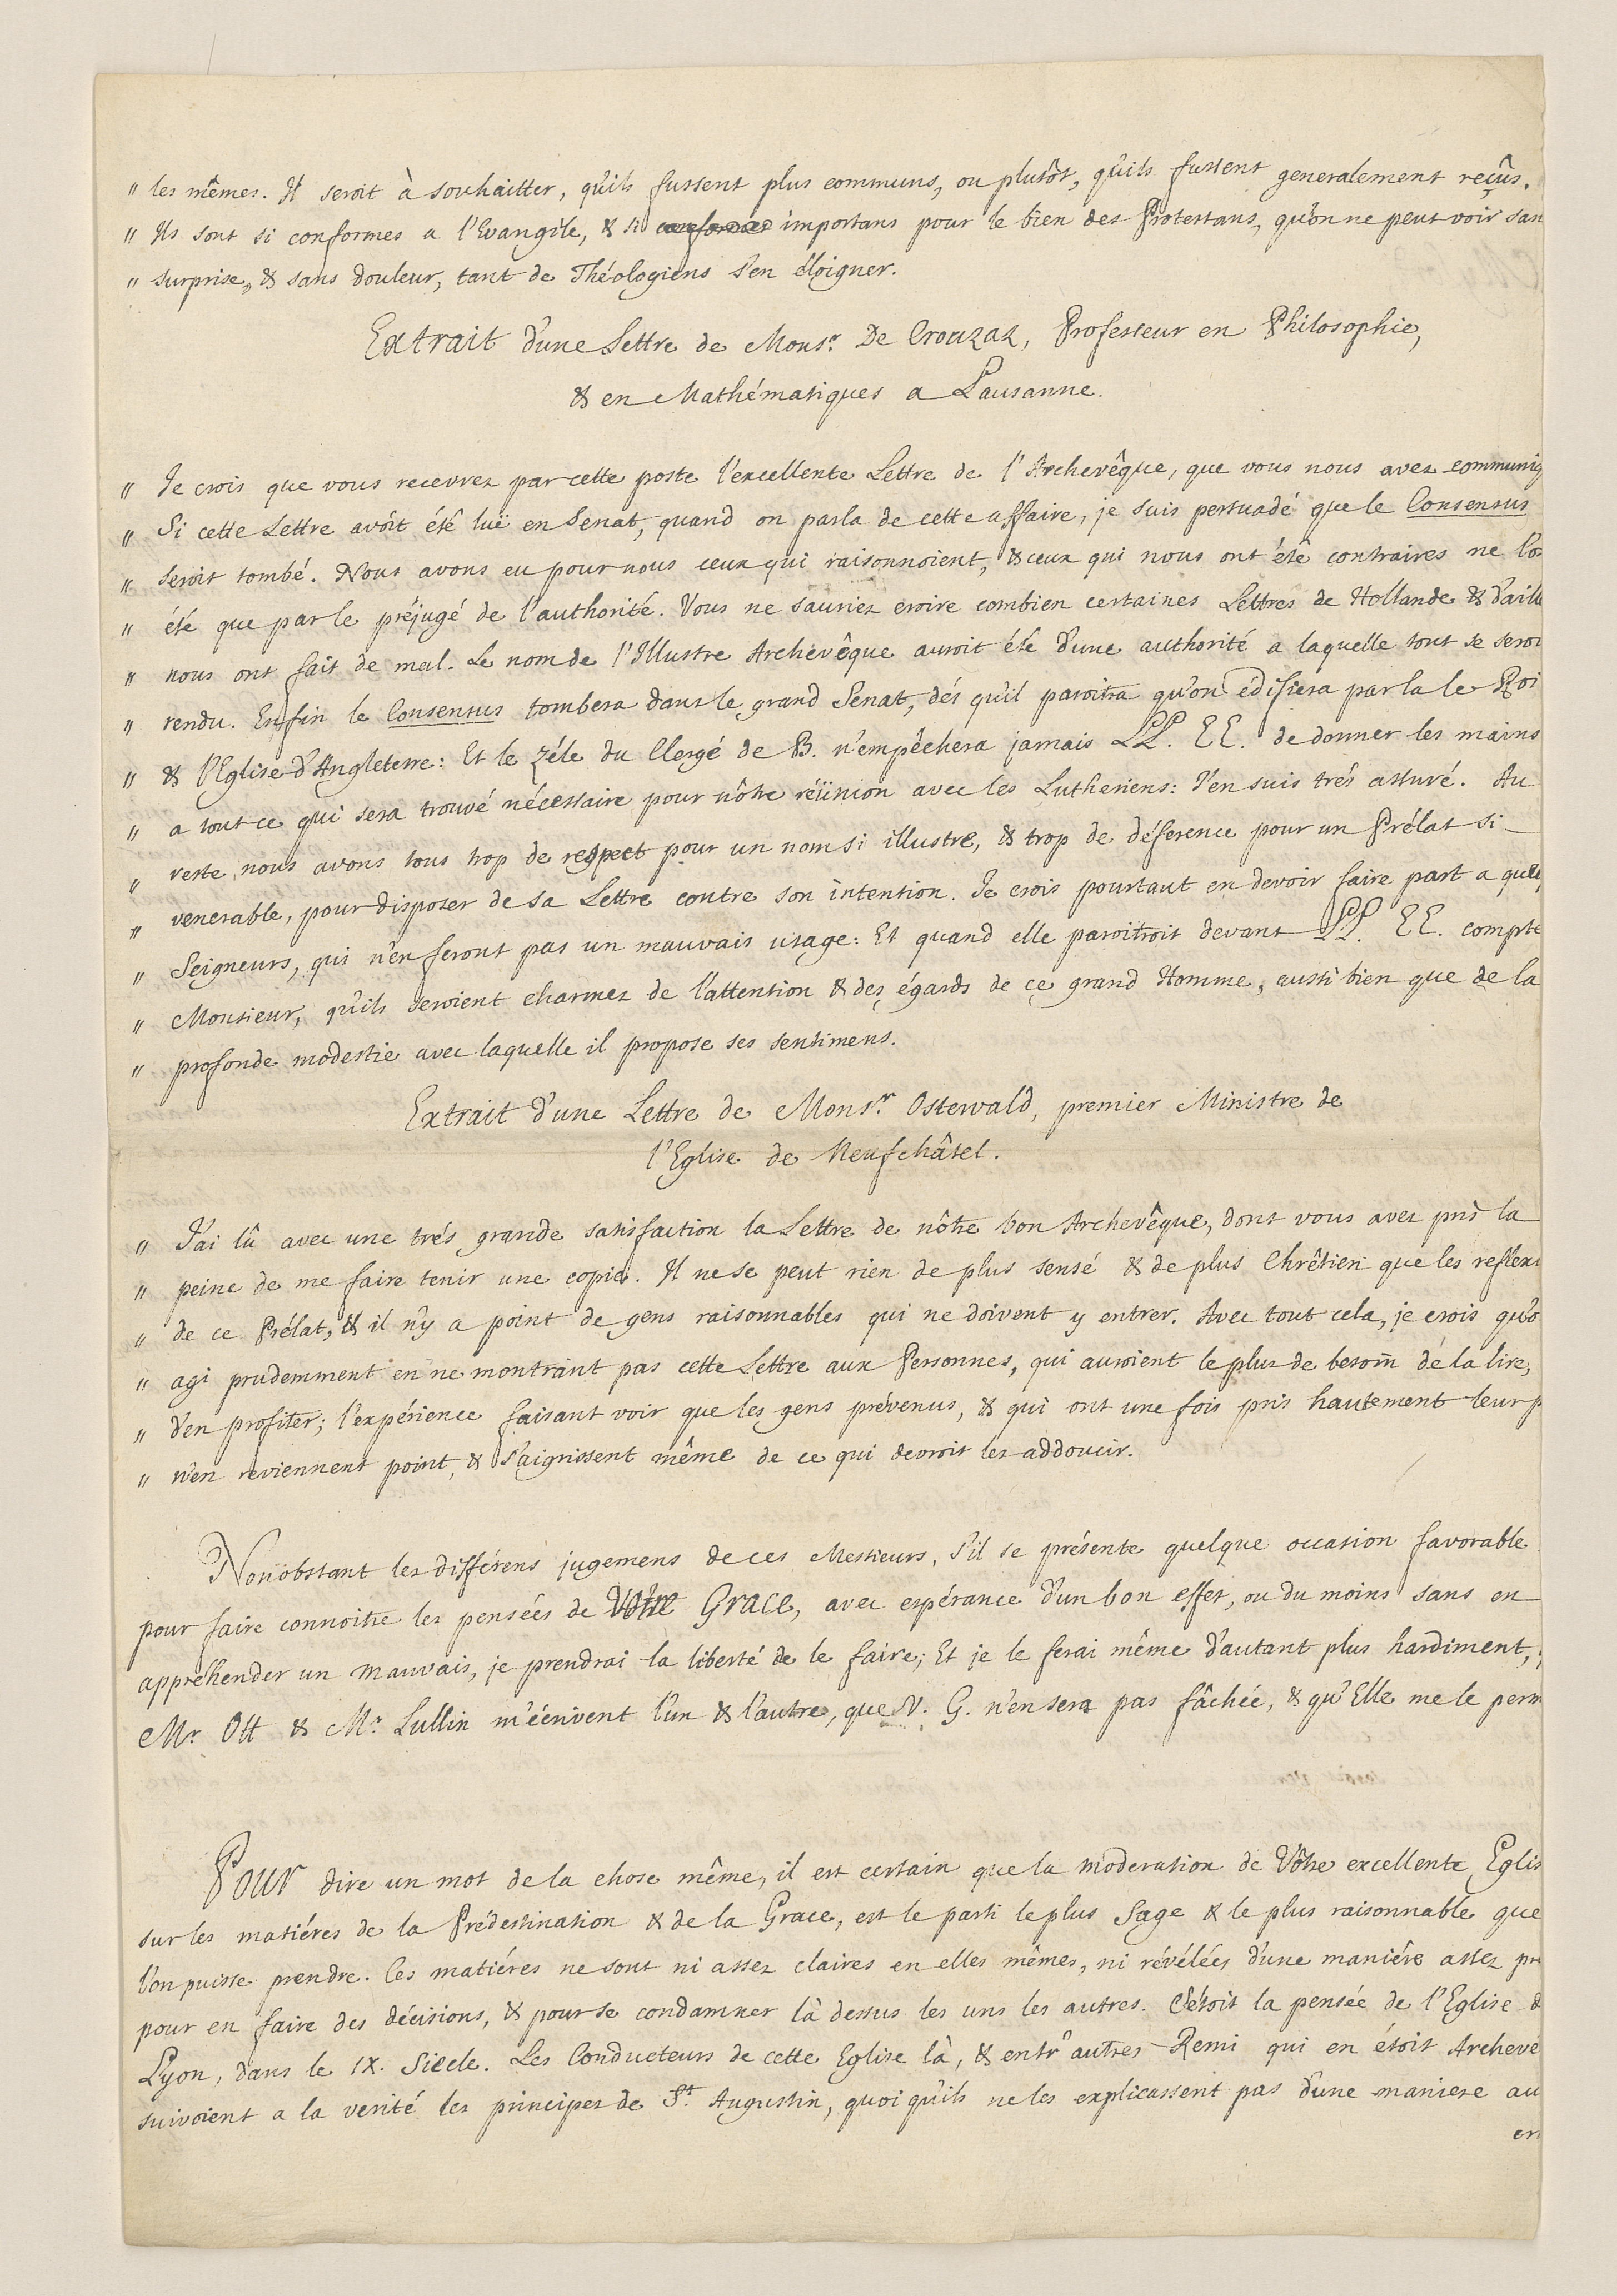 " les mêmes. Il seroit à souhaitter, qu'ils fussent plus communs, ou plutôt, qu'ils fussent generalement reçûs.
" Ils sont si conformes a l'Evangile, & si importans pour le bien des Protestans, qu'on ne peut voir san
" surprise, & sans douleur, tant de Théologiens s'en éloigner.
Extrait d'une Lettre de Monsr. De Crouzaz, Professeur en Philosophie,
& en Mathématiques a Lausanne.
" Je crois que vous recevrez par cette poste l'excellente Lettre de l'Archevêque, que vous nous avez communiq
" Si cette Lettre avoit été luë en Senat, quand on parla de cette affaire, je suis persuadé que le Consensus
" seroit tombé. Nous avons eu pour nous ceux qui raisonnoient, & ceux qui nous ont été contraires ne l'o
" été que par le préjugé de l'authorité. Vous ne sauriez croire combien certaines Lettres de Hollande & d'aille
" nous ont fait de mal. Le nom de l'Illustre Archevêque auroit été d'une authorité a laquelle tout se seroi
" rendu. Enfin le Consensus tombera dans le grand Senat, dés qu'il paroitra qu'on édifiera par la le Roi
" & l'Eglise d'Angleterre: Et le zéle du Clergé de B. n'empêchera jamais LL. EE. de donner les mains
" a tout ce qui sera trouvé nécessaire pour nôtre réünion avec les Lutheriens: J'en suis trés assuré. Au
" reste, nous avons tous trop de respect pour un nom si illustre, & trop de déference pour un Prélat si
" venerable, pour disposer de sa Lettre contre son intention. Je crois pourtant en devoir faire part a quelq
" Seigneurs, qui n'en feront pas un mauvais usage: Et quand elle paroitroit devant LL. EE. compte
" Monsieur, qu'ils seroient charmez de l'attention & des égards de ce grand Homme, aussi bien que de la
" profonde modestie avec laquelle il propose ses sentimens.
Extrait d'une Lettre de Monsr. Ostewald, premier Ministre de
l'Eglise de Neufchâtel.
" J'ai lû avec une trés grande satisfaction la Lettre de nôtre bon Archevêque, dont vous avez pris la
" peine de me faire tenir une copie. Il ne se peut rien de plus sensé & de plus Chrêtien que les reflexi
" de ce Prélat, & il n'y a point de gens raisonnables qui ne doivent y entrer. Avec tout cela, je crois qu'o
" agi prudemment en ne montrant pas cette Lettre aux Personnes, qui auroient le plus de besoin de la lire,
" d'en profiter; l'expérience faisant voir que les gens prévenus, & qui ont une fois pris hautement leur p
" n'en reviennent point, & s'aigrissent même de ce qui devroit les addoucir.
Nonobstant les différens jugemens de ces Messieurs, s'il se présente quelque occasion favorable
pour faire connoitre les pensées de Vôtre Grace, avec espérance d'un bon effet, ou du moins sans en
appréhender un mauvais, je prendrai la liberté de le faire; Et je le ferai même d'autant plus hardiment,
Mr. Ott & Mr. Lullin m'écrivent l'un & l'autre, que V. G. n'en sera pas fâchée, & qu'Elle me le perm
Pour dire un mot de la chose même, il est certain que la moderation de Vôtre excellente Eglis
sur les matiéres de la Prédestination & de la Grace, est le parti le plus sage & le plus raisonnable que
l'on puisse prendre. Ces matiéres ne sont ni assez claires en elles mêmes, ni révélées d'une maniére assez pre
pour en faire des décisions, & pour se condamner là dessus les uns les autres. C'étoit la pensée de l'Eglise d
Lyon, dans le IX. Siecle. Les Conducteurs de cette Eglise là, & entr'autres Remi qui en étoit Archevê
suivoient a la verité les principes de St. Augustin, quoi qu'ils ne les expliquassent pas d'une maniere au